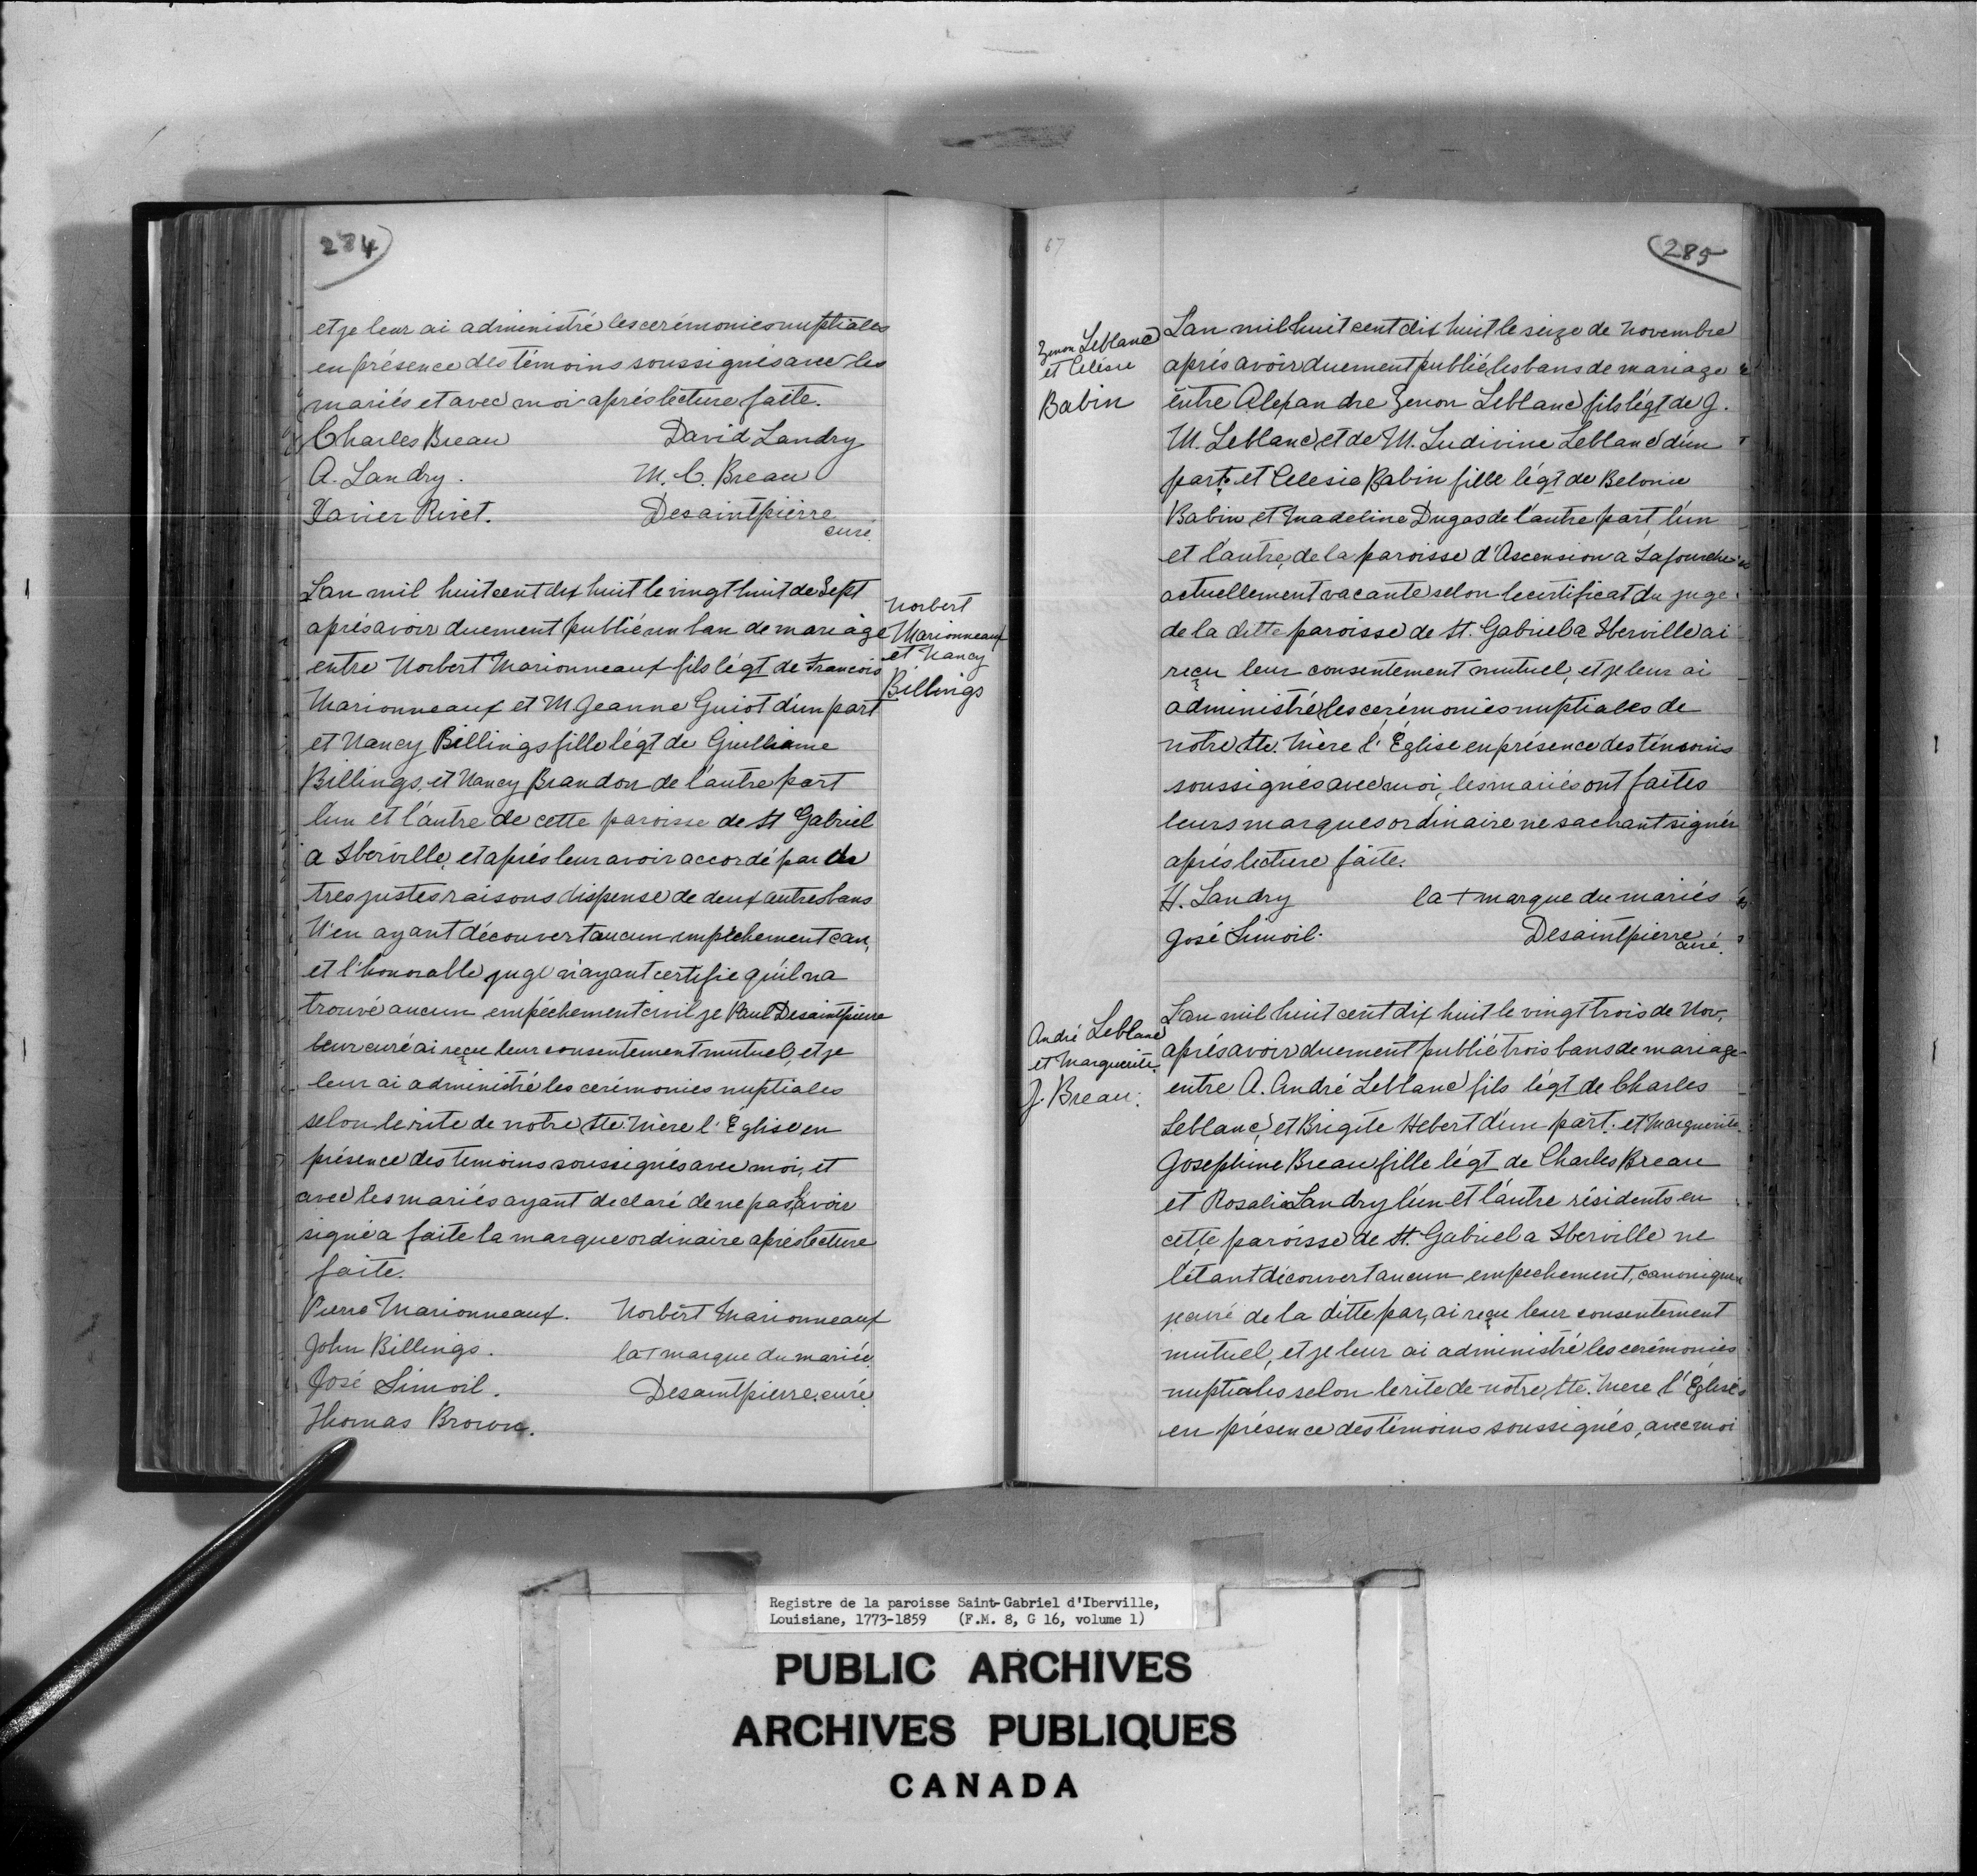 284
et je leur ai administré les cerémonies nuptiales
en présence des témoins soussignés avec les
mariés et avec moi aprés lecture faite.
Charles Breau David Landry
A. Landry. M. C. Breau
Xavier Rivet. Desaintpierre
curé.
Lan mil huit cent dix huit le vingt huit de Sept
aprés avoir duement publié un ban de mariage
entre Norbert Marionneaux fils légt de Francois
Marionneaux et M Jeanne Guiot d'un part
et Nancy Billings fille légt de Guilliame
Billings, et Nancy Brandon de l'autre part
lun et l'autre de cette paroisse de St Gabriel
a Iberville, et aprés leur avoir accordé par de
tres justes raisons dispense de deux autres bans
N'en ayant découvert aucun empêchement can,
et l'honorable juge n'ayant certifie qu'il na
trouvé aucun empéchement civil je Paul Desaintpierre
leur curé ai reçu leur consentement mutuel, et je
leur ai administré les cerémonies nuptiales
selon le rite de notre Ste. Mère l'Eglise en
présence des temoins soussignés avec moi, et
avec les mariés ayant declaré de ne pas savoir
signé a faite la marque ordinaire aprés lecture
faite.
Pierre Marionneaux. Norbert Marionneaux
John Billings. la + marque du mariée
José Limoil. Desaintpierre, curé.
Thomas Brown.
Norbert
Marionneaux
et Nancy
Billings
67
285
Zenon Leblanc
et Celésie
Babin
Lan mil huit cent dix huit le seize de Novembre
aprés avoir duement publié, les bans de mariage
entre Alexandre Zenon Leblanc fils légt de J.
M. Leblanc, et de M. Ludivine Leblanc d'un
part. et Celesie Babin fille légt de Belonie
Babin et Madeline Dugas de l'autre part l'un
et l'autre, de la paroisse d'Ascension a Lafourche
actuellement vacante selon le certificat du juge
de la ditte paroisse de St. Gabriel a Iberville ai
reçu leur consentement mutuel, et je leur ai
administré les cerémonies nuptiales de
notre Ste. Mère l'Église en présence des témoins
soussignés avec moi, les mariés ont faites
leurs marques ordinaire ne sachant signér
aprés lecture faite.
H. Landry la + marque du mariés
José Limoil. Desaintpierre
curé.
André Leblanc
et Marguerite.
J. Breau.
Lan mil huit cent dix huit le vingt trois de Nov.
aprés avoir duement publié trois bans de mariage
entre A. André Leblanc fils légt de Charles
Leblanc, et Brigite Hebert d'un part. et Marguerite
Josephine Breau fille légt de Charles Breau
et Rosalie Landry l'un et l'autre résidents en
cette paroisse de St. Gabriel a Iberville ne
l'étant découvert aucun empechement, canonique
je curé de la ditte par, ai reçu leur consentement
mutuel, et je leur ai administré les cerémonies
nuptiales selon le rite de notre, Ste. Mere l'Eglise
en présence des témoins soussignés, avec moi
Registre de la paroisse Saint-Gabriel d'Iberville,
Louisiane, 1773-1859 (F.M. 8, G 16, volume 1)
PUBLIC ARCHIVES
ARCHIVES PUBLIQUES
CANADA